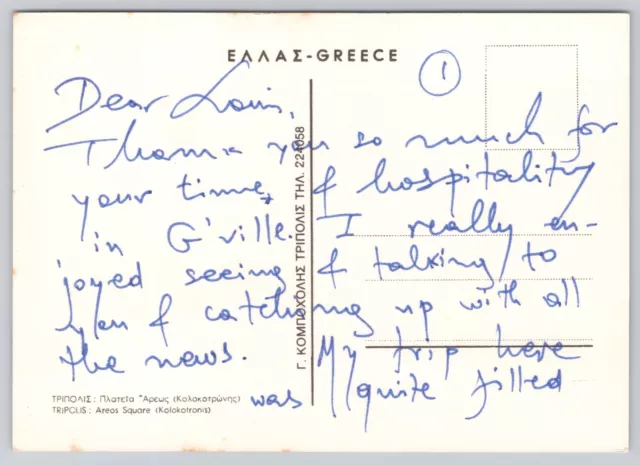 ΕΛΛΑΣ-GREECE
1
Dear Louis,
Thank you so much for
your time, & hospitality
in G'ville. I really en-
joyed seeing & talking to
you & catching up with all
the news. My trip here
was quite filled
Γ. ΚΟΜΠΟΧΟΛΗΣ ΤΡΙΠΟΛΙΣ ΤΗΛ. 224058
ΤΡΙΠΟΛΙΣ : Πλατεῖα Ἄρεως (Κολοκοτρώνης)
TRIPOLIS : Areos Square (Kolokotronis)